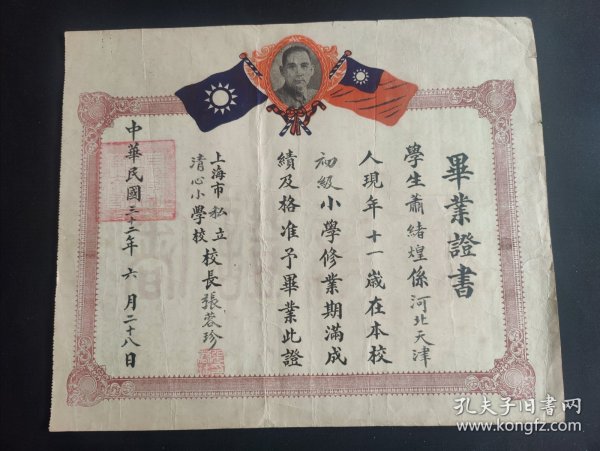 畢業證書
學生蕭緒煌係河北天津
人現年十一歲在本校
初級小學修業期滿成
績及格准予畢業此證
上海市私立
清心小學校
校長張蓉珍
中華民國三十二年六月二十八日
孔夫子旧书网
www.kongfz.com